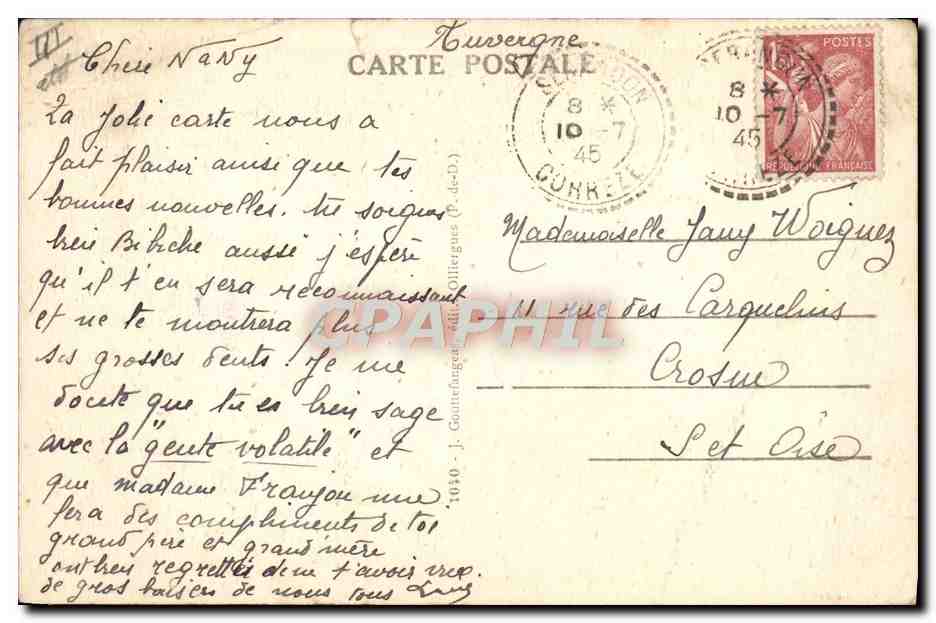 Auvergne
CARTE POSTALE
III
Chère Nany
La jolie carte nous a
fait plaisir ainsi que tes
bonnes nouvelles. tu soignes
bien Bibiche aussi j'espère
qu'il t'en sera reconnaissant
et ne te montrera plus
ses grosses dents! Je me
doute que tu es bien sage
avec la "gente volatile" et
que madame Franjou me
fera des compliments de toi
grand père et grand'mère
ont bien regretté de ne t'avoir
de gros baisers de nous tous
1040 - J. Gouttefangeas, édit., Olliergues (P.-de-D.)
8 *
10 -7
45
CORREZE
8 *
10 -7
45
POSTES
REPUBLIQUE FRANÇAISE
Mademoiselle Jany Woignez
11 rue des Carquelins
Crosne
S et Oise
CPAPHIL